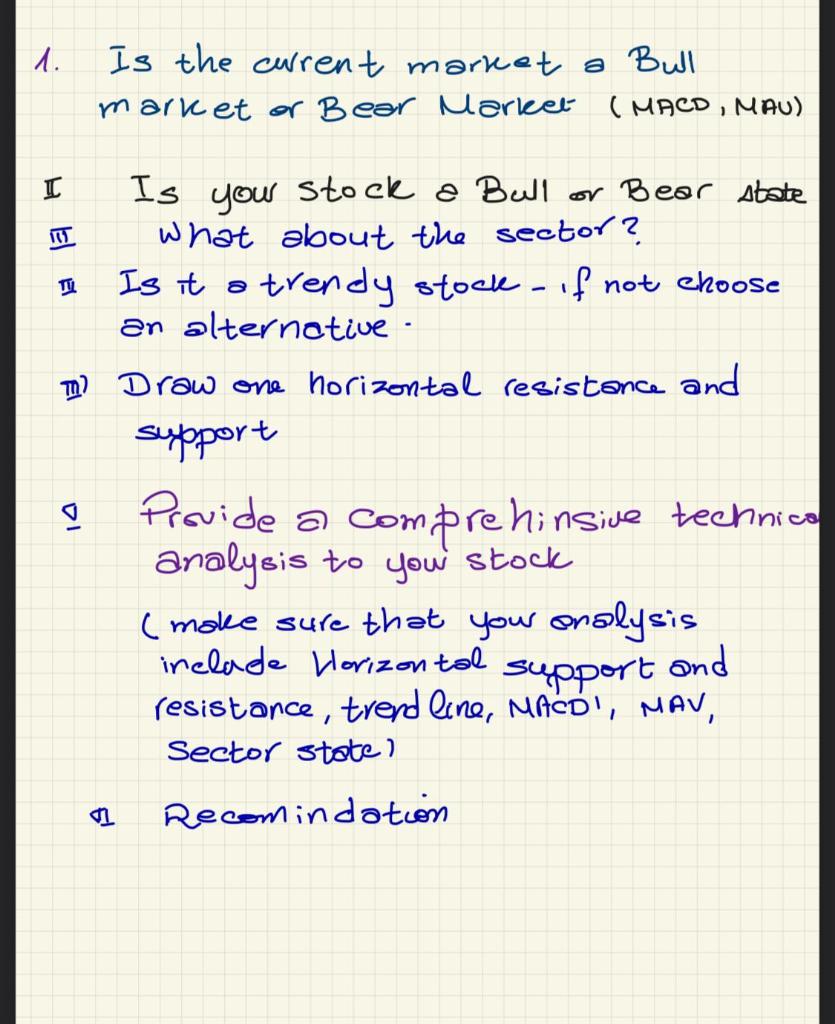 1. Is the current market a Bull
market or Bear Market (MACD, MAV)
II Is your stock a Bull or Bear state
III What about the sector?
III Is it a trendy stock - if not choose
an alternative.
III) Draw one horizontal resistance and
support
V Provide a comprehinsive technica
analysis to your stock
(make sure that your analysis
include Horizontal support and
resistance, trend line, MACD, MAV,
Sector state)
VI Recomindation